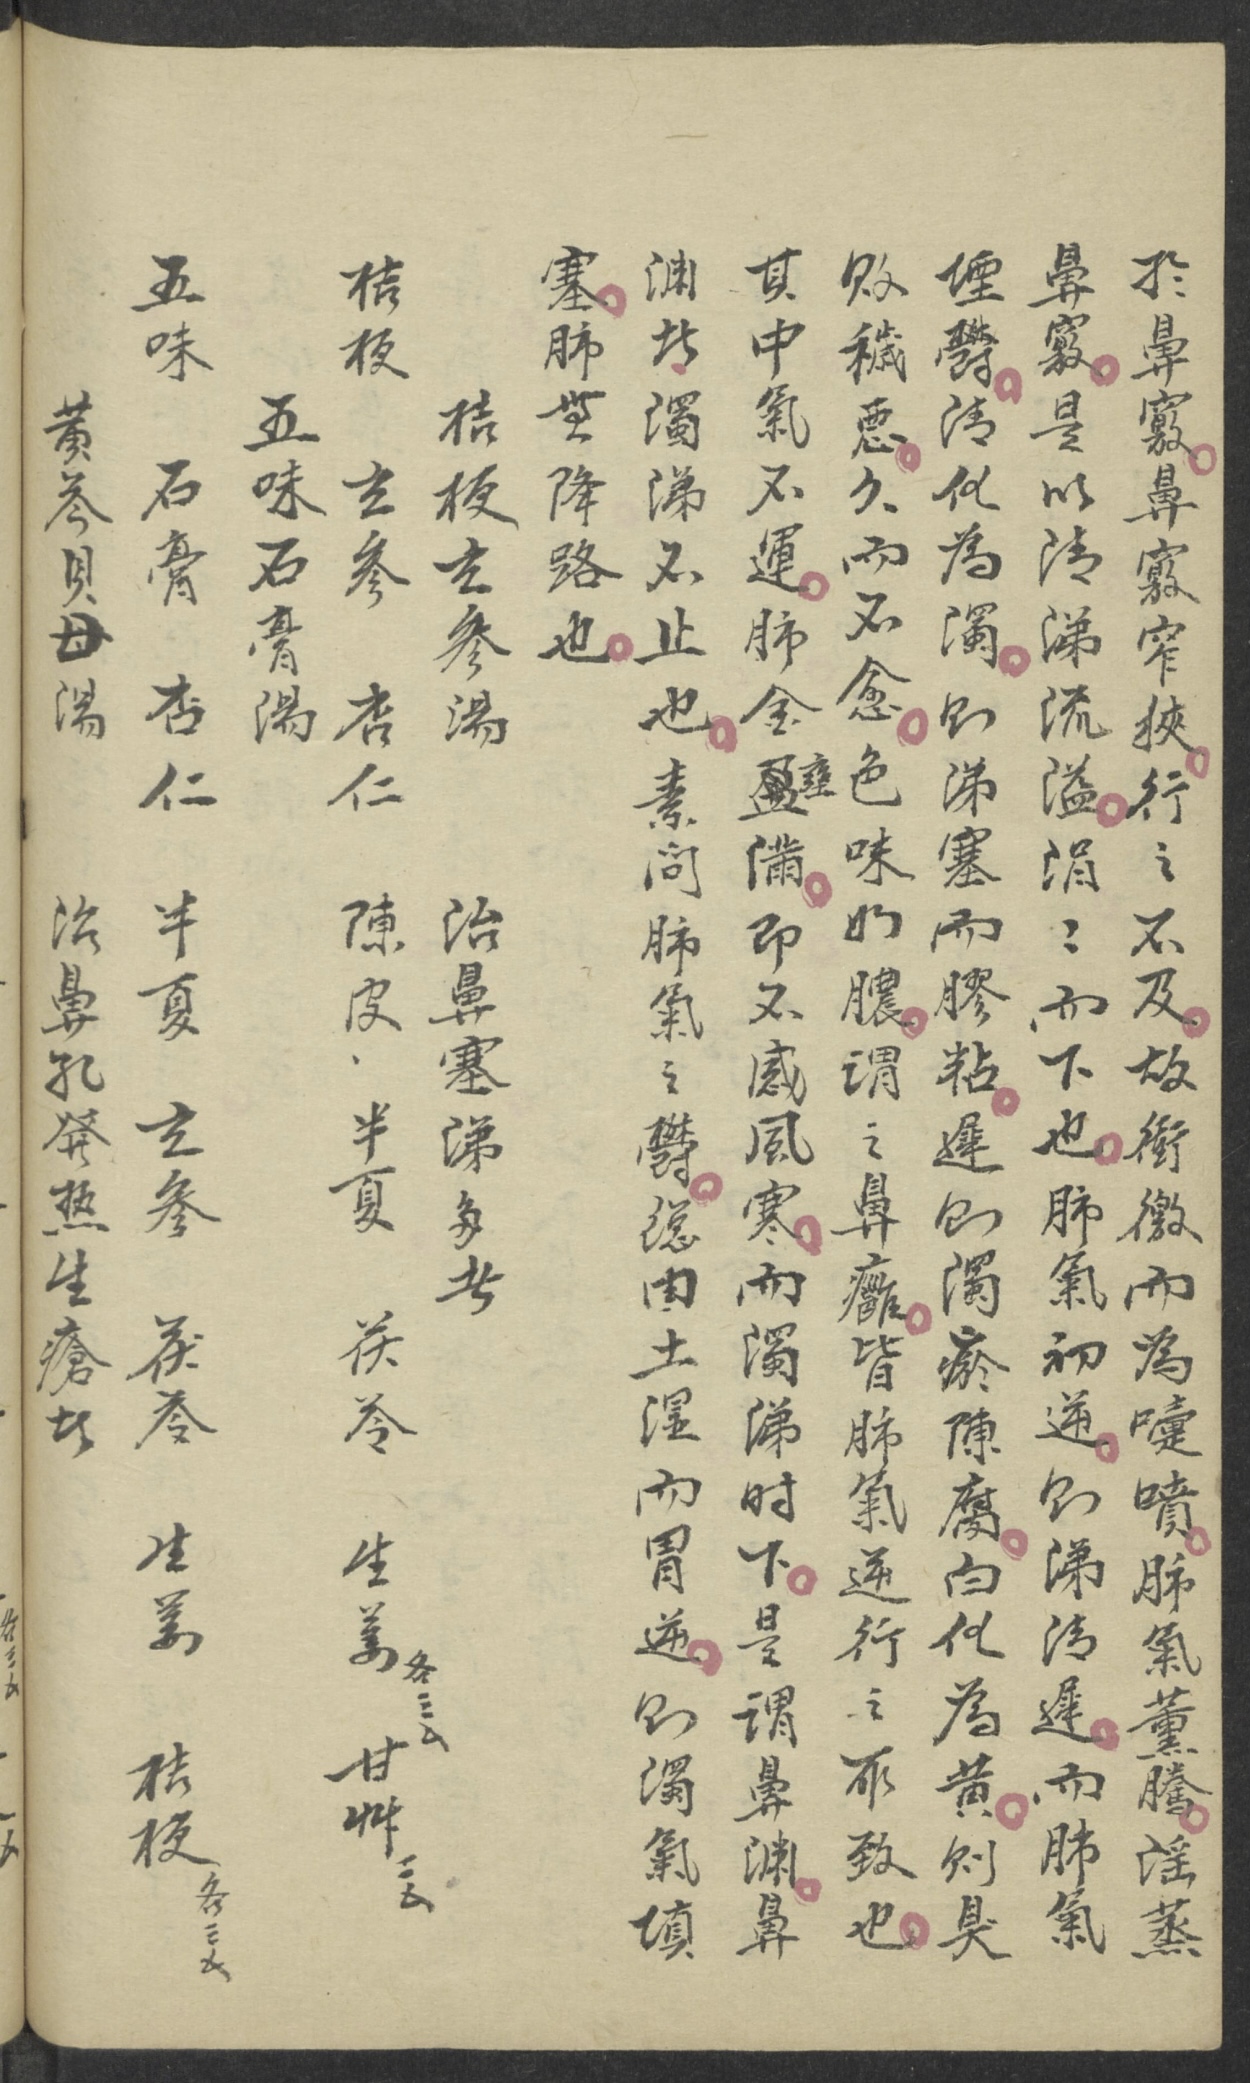 於鼻竅鼻竅窄狹行之不及故衝激而為嚏噴肺氣薰騰淫蒸
鼻竅是以清涕流溢涓〻而下也肺氣初逆則涕清遲而肺氣
堙鬱清化為濁則涕塞而膠粘遲則濁瘀陳腐白化為黃則臭
敗穢惡久而不愈色味如膿謂之鼻癰皆肺氣逆行之所致也
其中氣不運肺金壅滿即不感風寒而濁涕时下是謂鼻淵鼻
淵者濁涕不止也素问肺氣之鬱總由土溼而胃逆則濁氣填
塞肺無降路也
桔梗玄參湯　治鼻塞涕多者
桔梗　玄參　杏仁　陳皮、半夏　茯苓　生姜各三錢　甘艸二錢
五味石膏湯
五味　石膏　杏仁　半夏　玄參　茯苓　生姜　桔梗各三錢
黃芩貝母湯　治鼻孔發热生瘡者